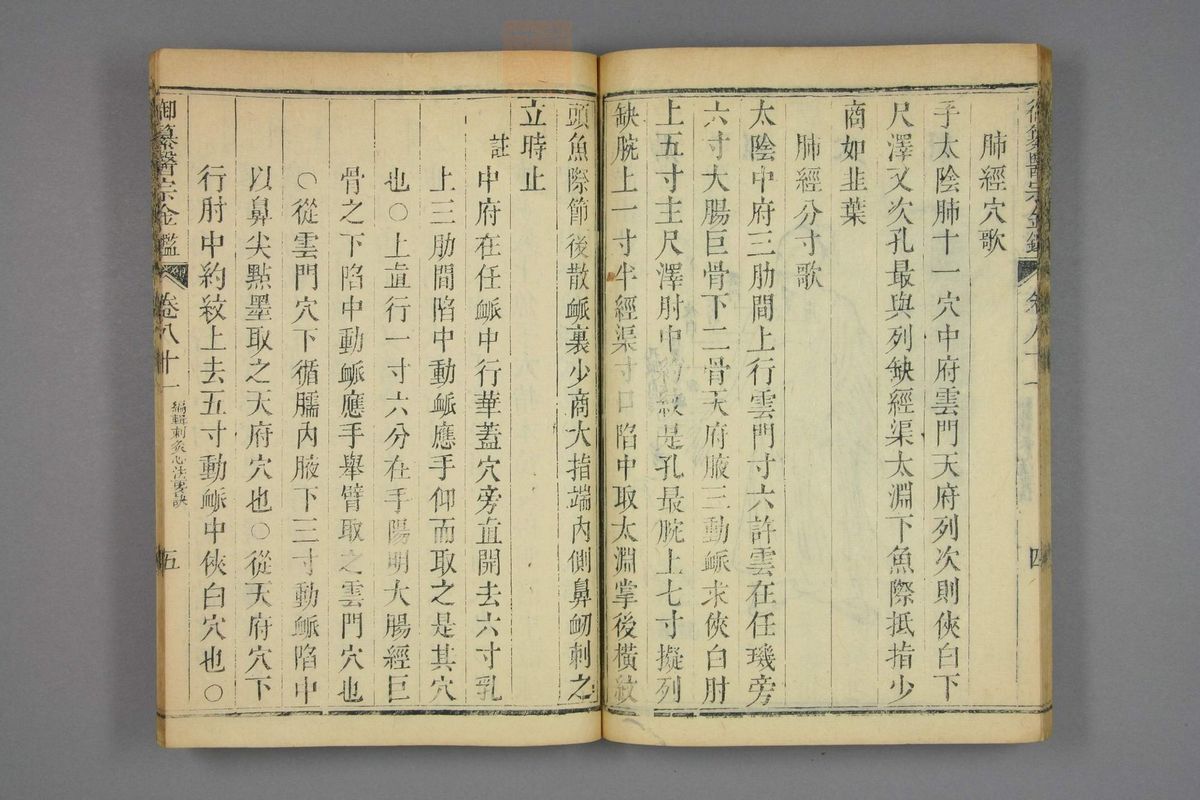 肺經穴歌
手太陰肺十一穴中府雲門天府列次則俠白下
尺澤又次孔最與列缺經渠太淵下魚際抵指少
商如韭葉
肺經分寸歌
太陰中府三肋間上行雲門寸六許雲在任璣旁
六寸大腸巨骨下二骨天府腋三動脈求俠白肘
上五寸主尺澤肘中約紋是孔最腕上七寸擬列
缺腕上一寸半經渠寸口陷中取太淵掌後橫紋
頭魚際節後散脈裏少商大指端內側鼻衂刺之
立時止
註
中府在任脈中行華蓋穴旁直開去六寸乳
上三肋間陷中動脈應手仰而取之是其穴
也○上直行一寸六分在手陽明大腸經巨
骨之下陷中動脈應手舉臂取之雲門穴也
○從雲門穴下循臑內腋下三寸動脈陷中
以鼻尖點墨取之天府穴也○從天府穴下
行肘中約紋上去五寸動脈中俠白穴也○
御纂醫宗金鑑
卷八十一
編輯刺灸心法要訣
五